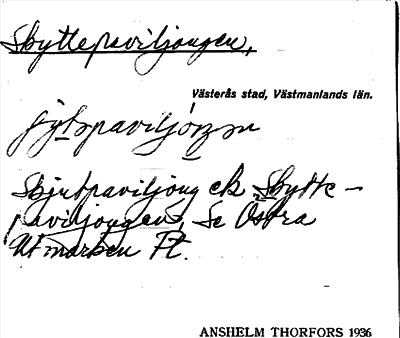 Skyttepaviljongen,
Västerås stad, Västmanlands län.
Skjutpaviljong el. Skytte-
paviljongen, Se Östra
Utmarken Ft.
ANSHELM THORFORS 1936